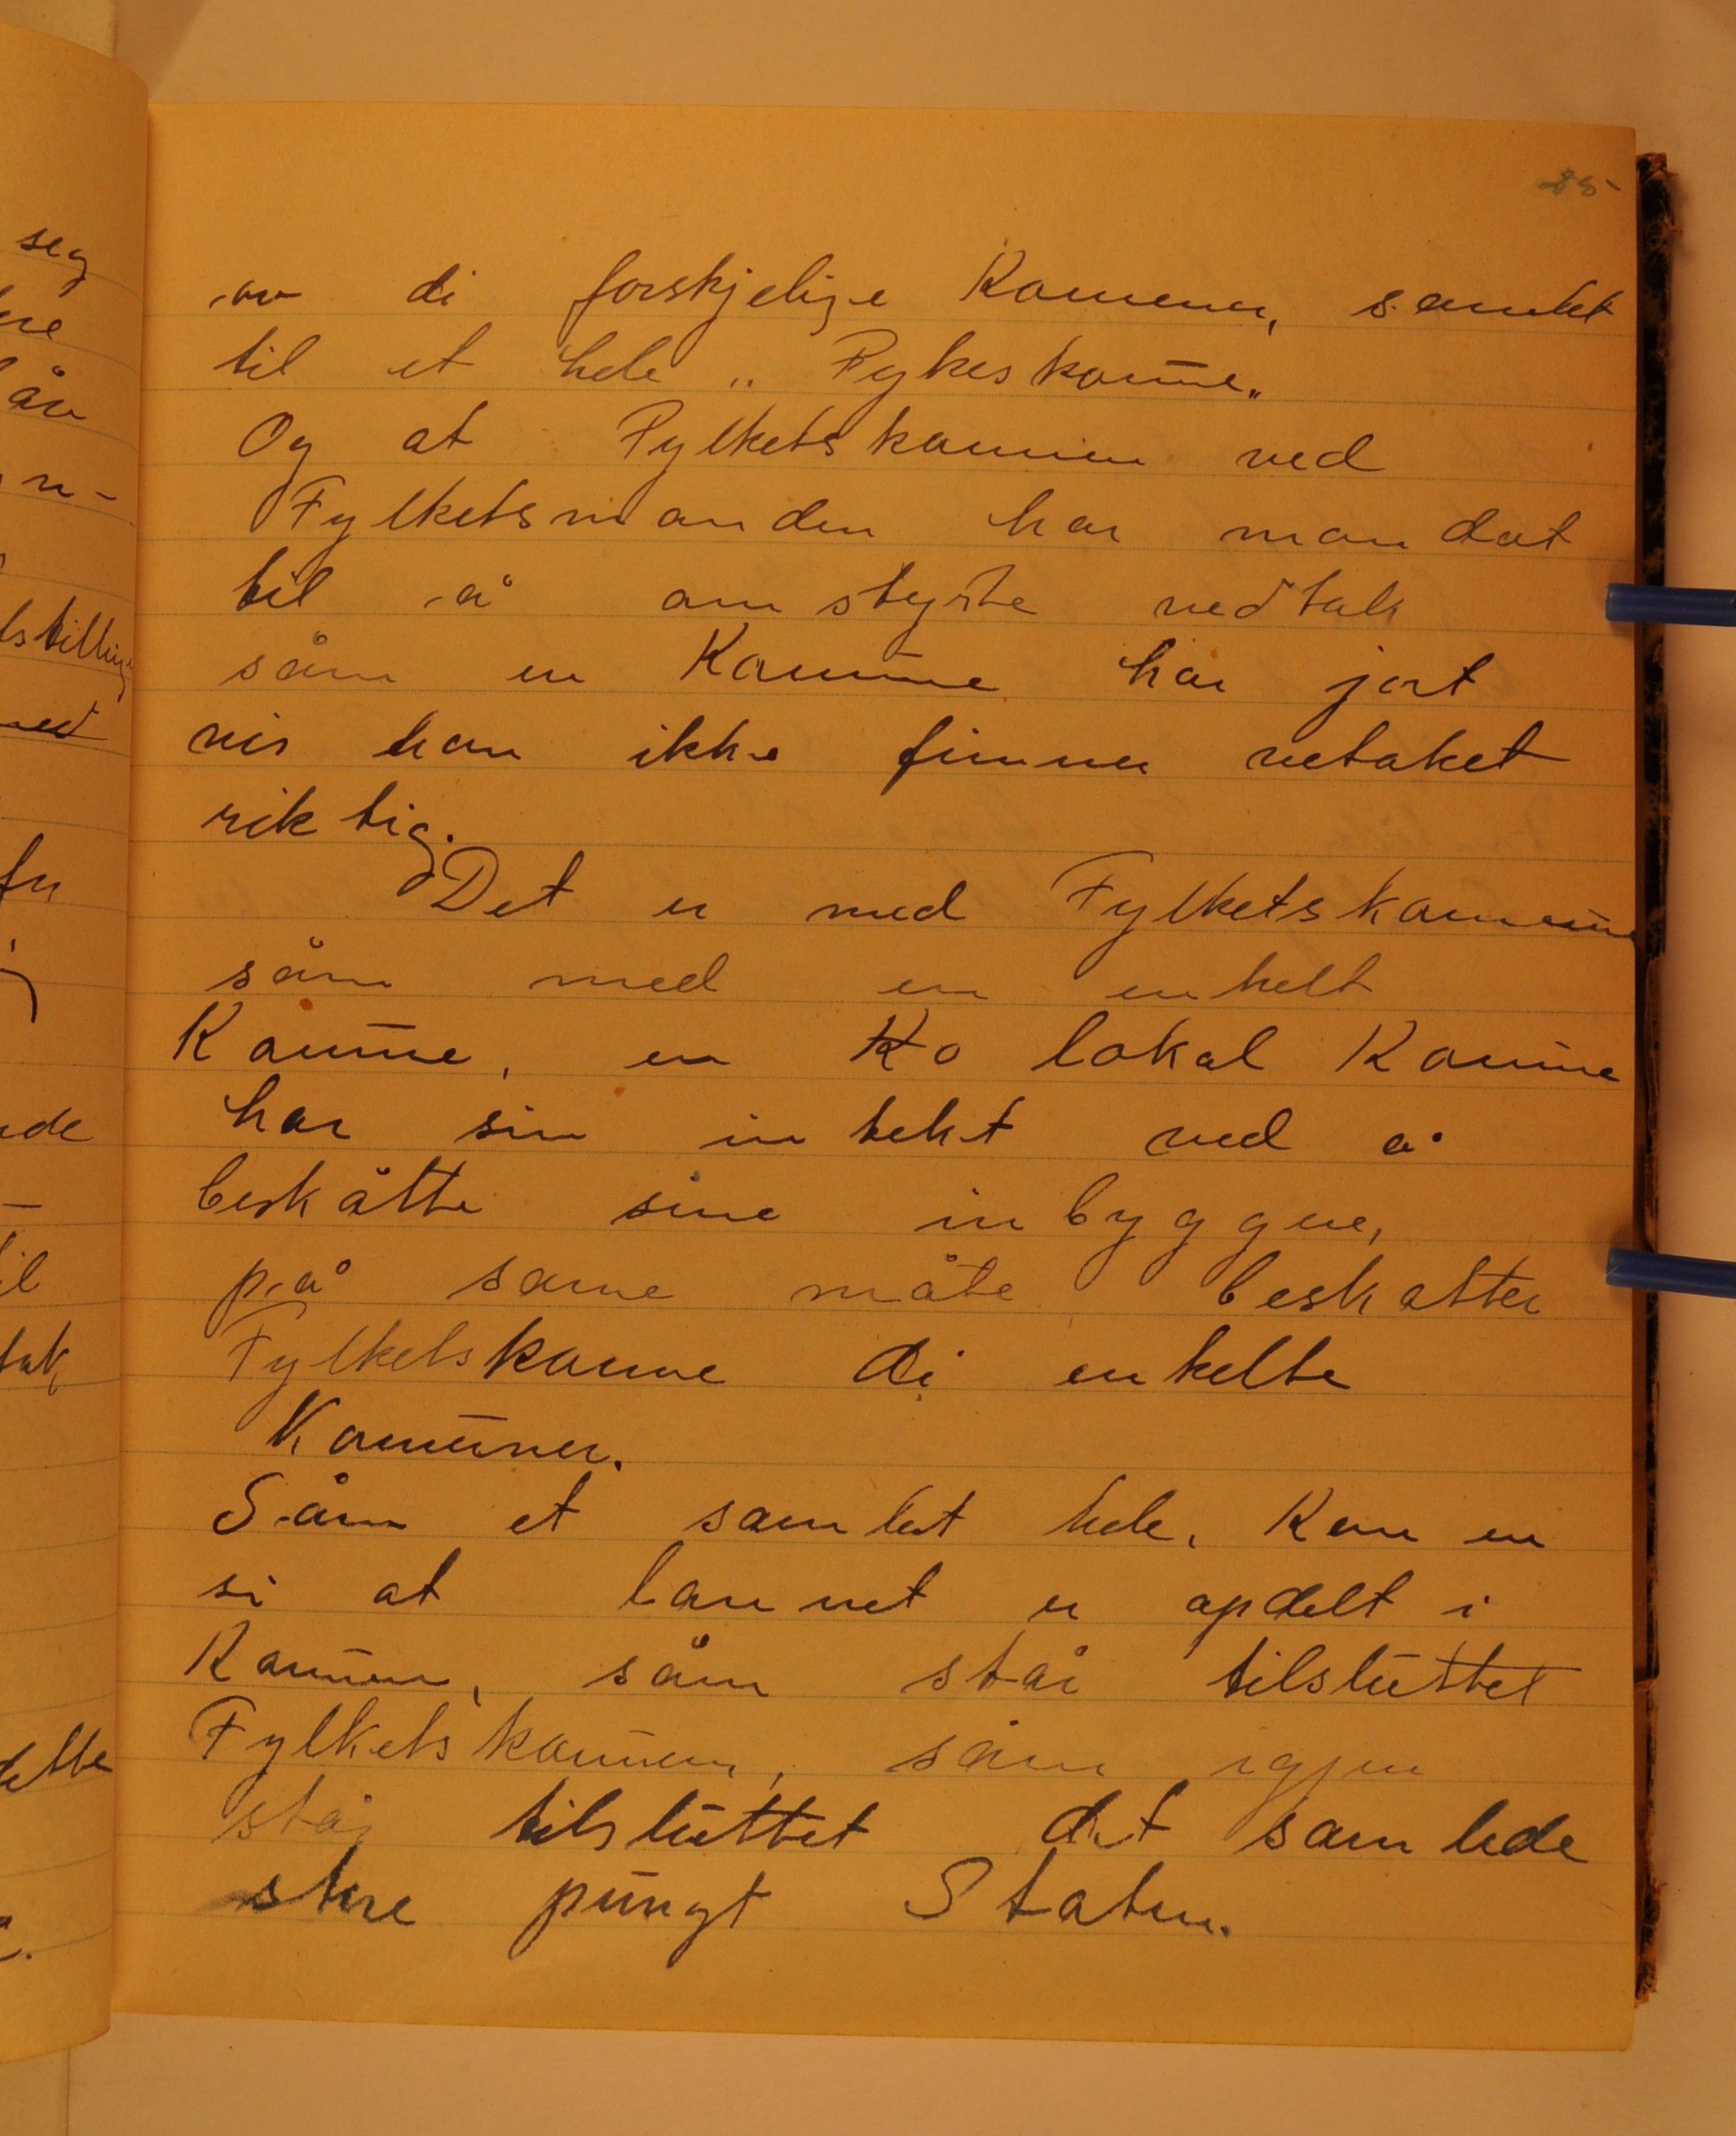 85
av di forskjelige Komuner, samlet
til et hele „ Fykeskomune„
Og at Fylketskomunen ved
Fylketsmanden har mandat
til å omstyrte vedtak
såm en Komune har jort
vis han ikke finner vetaket
riktig.
Det er med Fylketskomune
såm med en enkelt
Komune, en Ko lokal Komune
har sin intekt ved å
beskåtte sine inbyggere,
på same måte beskatter
Fylketskomune di enkelte
Komuner.
Såm et samlet hele, Kan en
si at lannet er opdelt i
Komuner, såm står tilsluttet
Fylketskomunen, såm igjen
står tilsluttet det samlede
store pungt Staten.